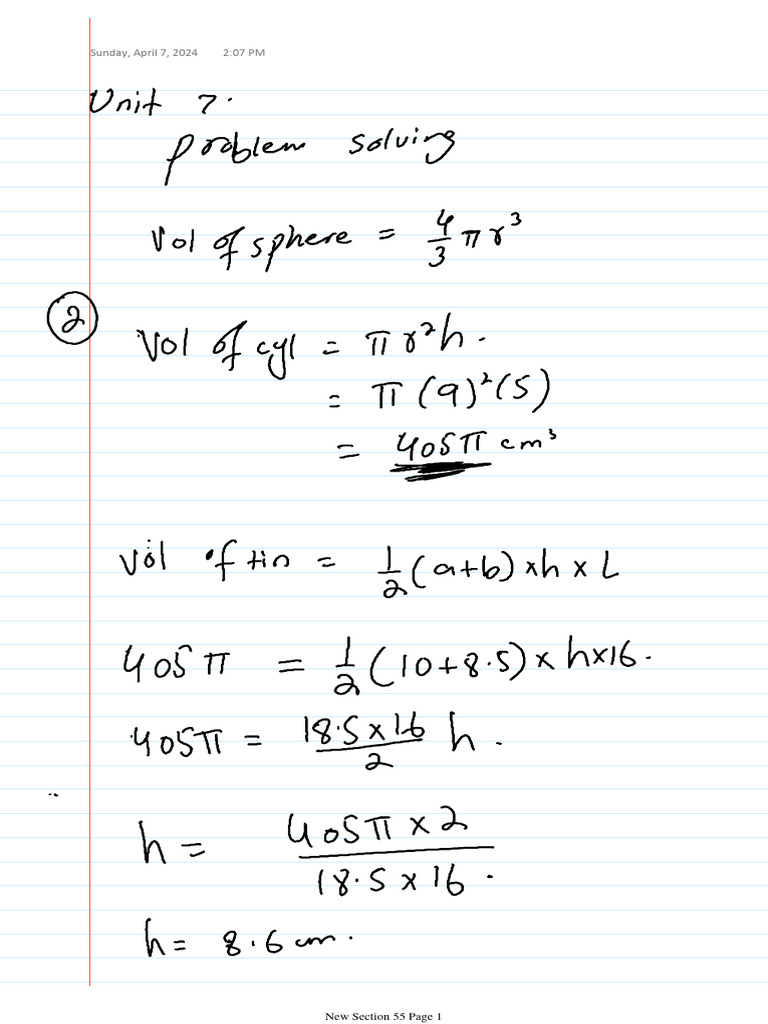 Sunday, April 7, 2024 2:07 PM
Unit 7.
problem solving
Vol of sphere = 4/3 π r³
② Vol of cyl = π r² h.
= π (9)² (5)
= 405π cm³
Vol of tin = 1/2 (a+b) × h × L
405 π = 1/2 (10+8.5) × h×16.
405π = 18.5 × 16 / 2 h.
h = 405π × 2 / 18.5 × 16.
h = 8.6 cm.
New Section 55 Page 1